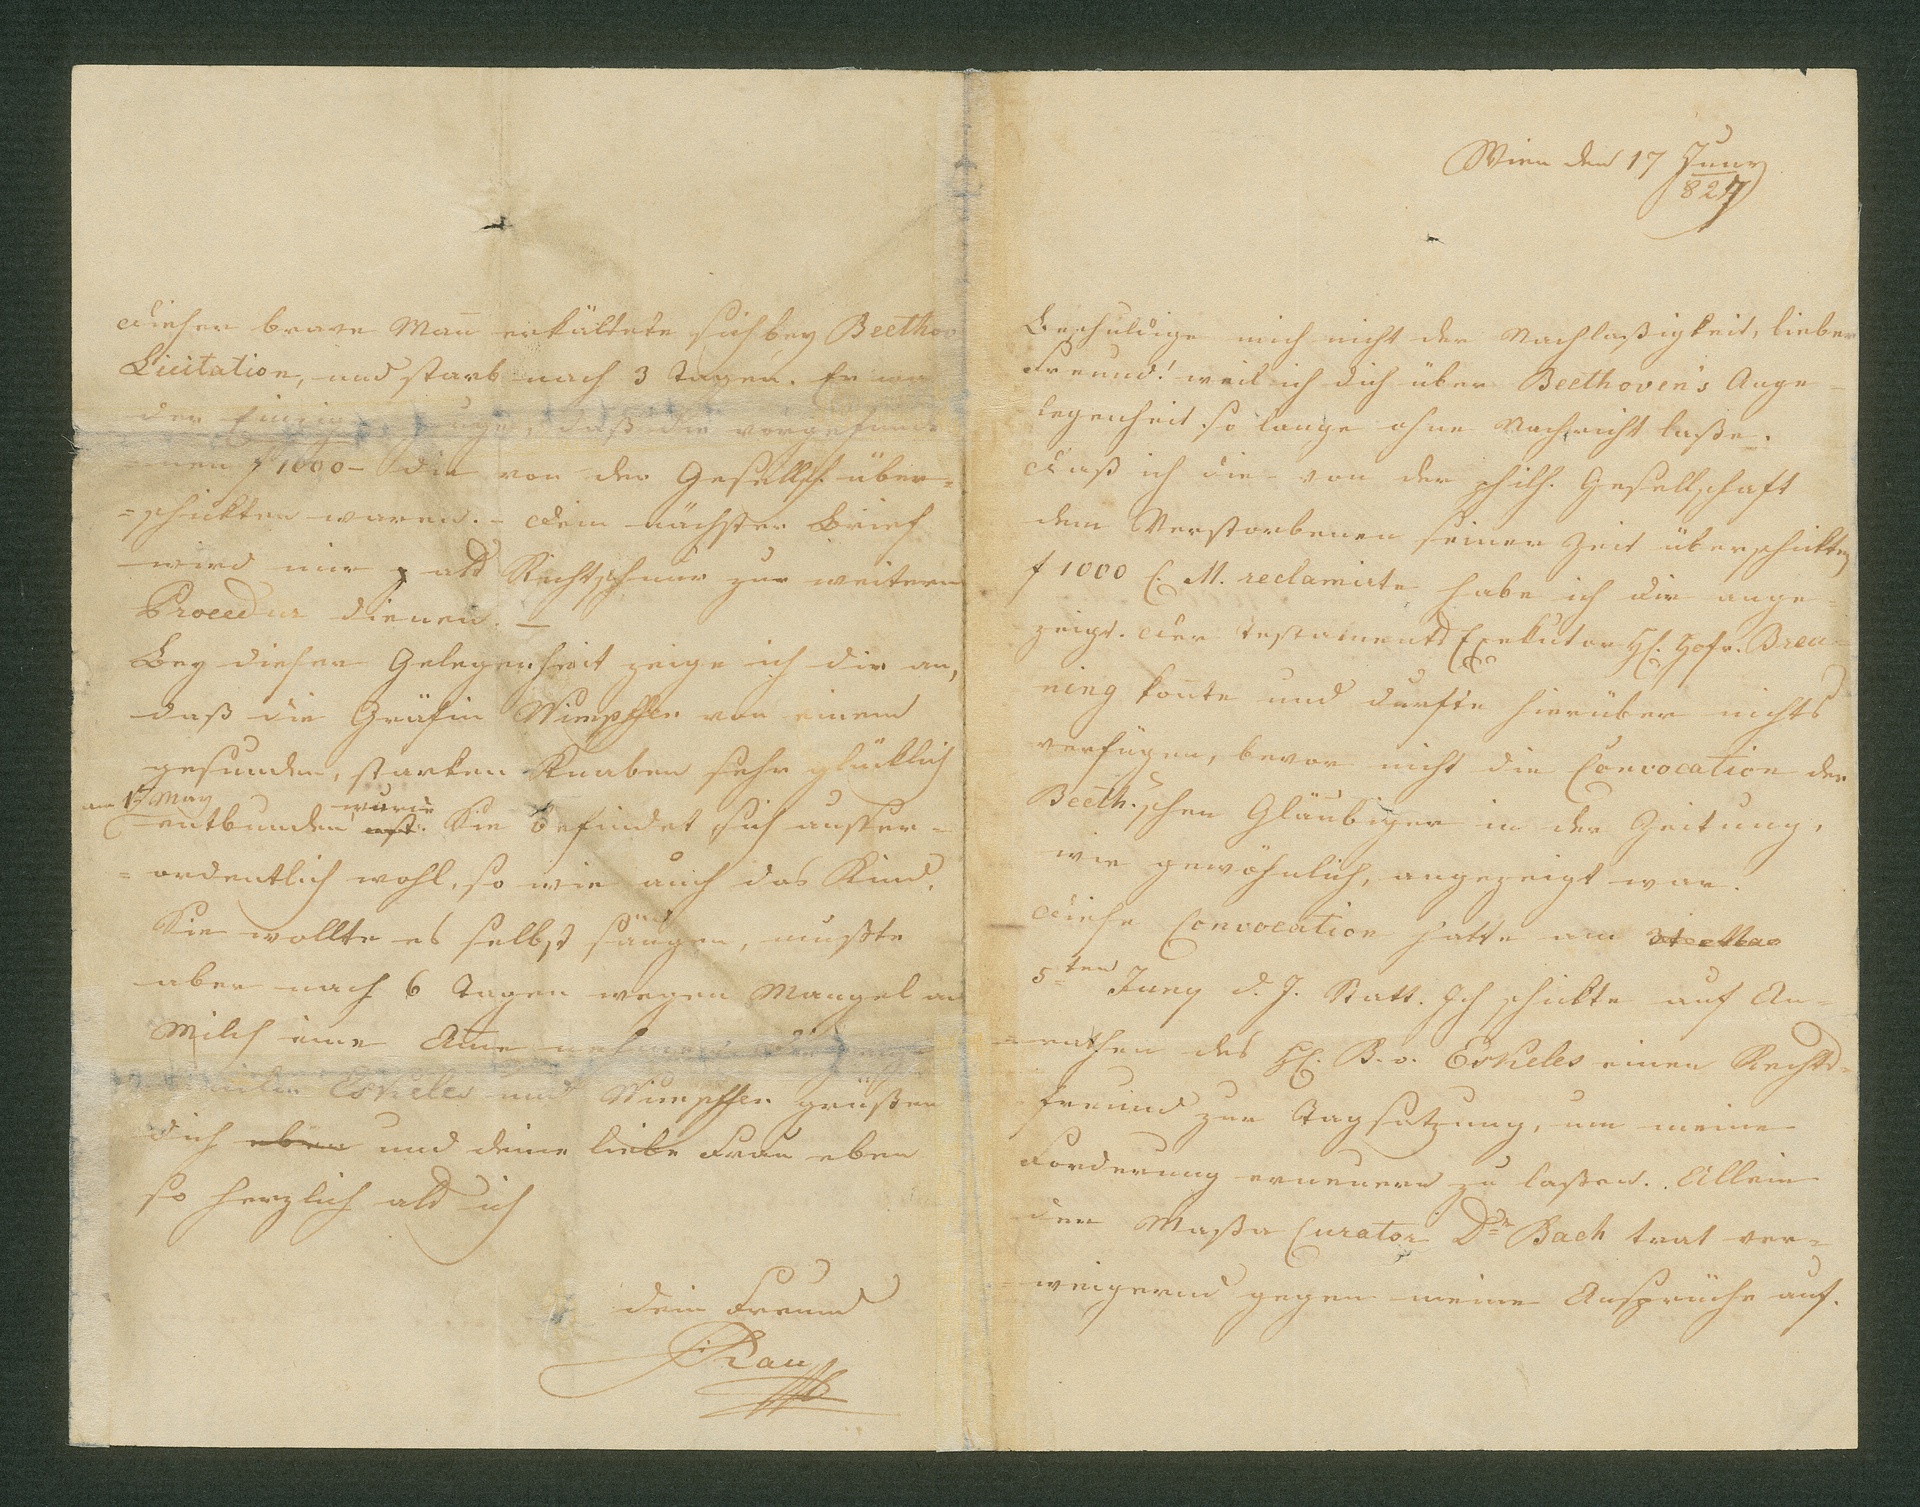 Wien den 17 Juny
827
Beschuldige mich nicht der Nachlaßigkeit, lieber
Freund! weil ich dich über Beethoven's Ange-
legenheit so lange ohne Nachricht laße.
Daß ich die von der philh. Gesellschaft
dem Verstorbenen seiner Zeit überschickten
f 1000 C. M. reclamirte habe ich dir ange-
zeigt. Der Testaments Exekutor H. Hofr. Breu-
ning konte und durfte hierüber nichts
verfügen, bevor nicht die Convocation der
Beeth.'schen Gläubiger in der Zeitung,
wie gewöhnlich, angezeigt war.
Diese Convocation hatte am
5ten Juny d. J. Statt. Ich schickte auf An-
rathen des H. B. v. Eskeles einen Rechts-
freund zur Tagsatzung, um meine
Forderung erneuern zu laßen. Allein
der Maßa Curator Dr Bach trat ver-
weigernd gegen meine Ansprüche auf.
Dieser brave Mañ erkältete sich bey Beethov
Licitation, und starb nach 3 Tagen. Er war
der Einzige Zeuge, daß die vorgefund-
enen f 1000 – die von der Gesellsch. über-
=schickten waren. – Dein nächster Brief
wird mir als Richtschnur zur weitern
Procedur dienen. –
Bey dieser Gelegenheit zeige ich dir an,
daß die Gräfin Wimpffen von einem
gesunden, starken Knaben sehr glücklich
am 1t May
entbunden wurde ist. Sie befindet sich außer-
=ordentlich wohl, so wie auch das Kind.
Sie wollte es selbst säugen, mußte
aber nach 6 Tagen wegen Mangel an
Milch eine Ame nehmen.
Eskeles und Wimpffen grüßen
dich eben und deine liebe Frau eben
so herzlich als ich
dein Freund
Rau